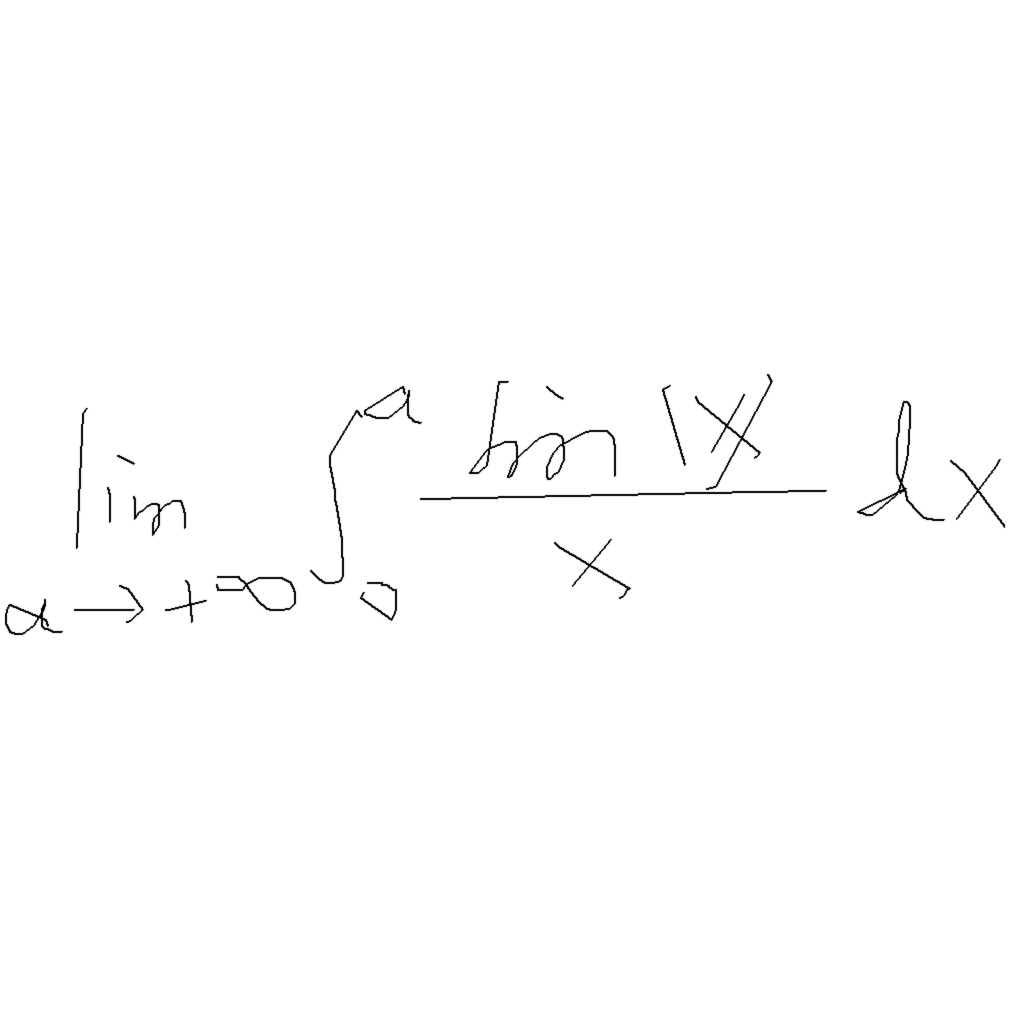 lim a→+∞ ∫₀ᵃ sin(x)/x dx